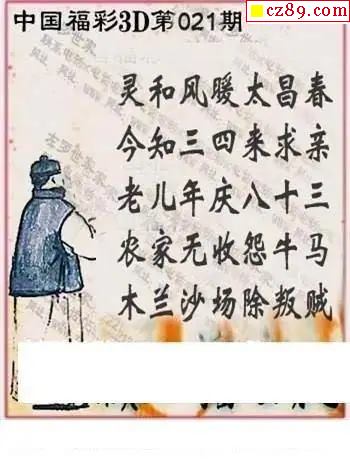 cz89.com
中国福彩3D第021期
灵和风暖太昌春
今知三四来求亲
老儿年庆八十三
农家无收怨牛马
木兰沙场除叛贼